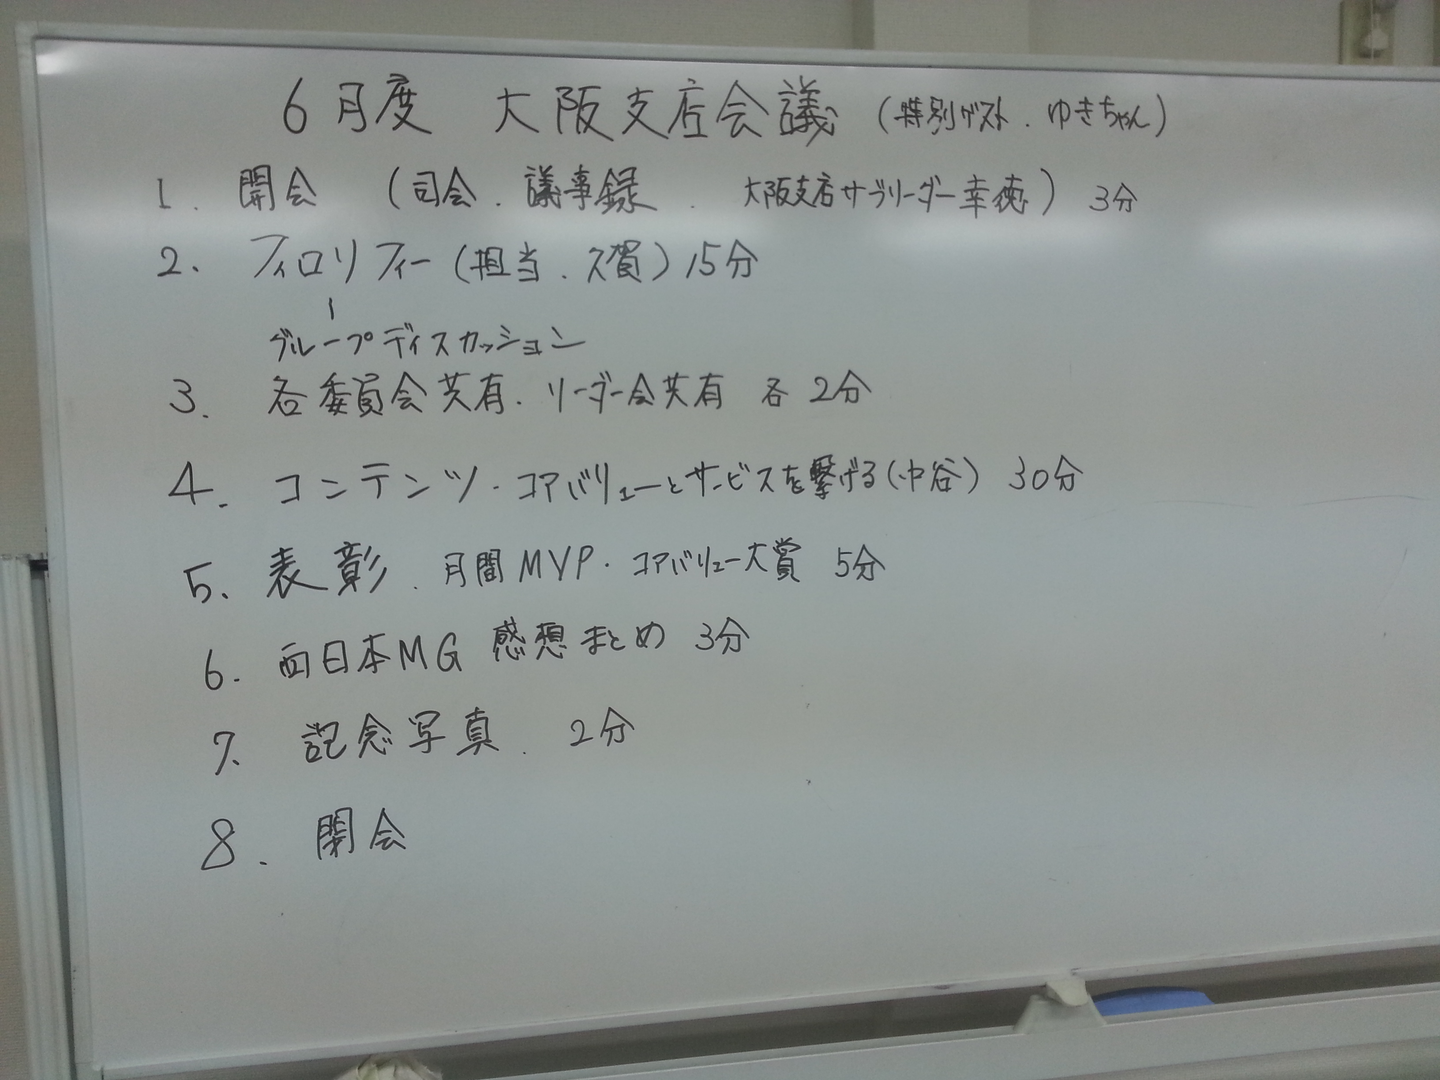 6月度 大阪支店会議 (特別ゲスト.ゆきちゃん)
1. 開会 (司会.議事録. 大阪支店サブリーダー幸徳) 3分
2. フィロリフィー(担当.久賀)15分
グループディスカッション
3. 各委員会共有.リーダー会共有 各2分
4. コンテンツ.コアバリューとサービスを繋げる(中谷) 30分
5. 表彰.月間MVP.コアバリュー大賞 5分
6. 西日本MG 感想まとめ 3分
7. 記念写真. 2分
8. 閉会